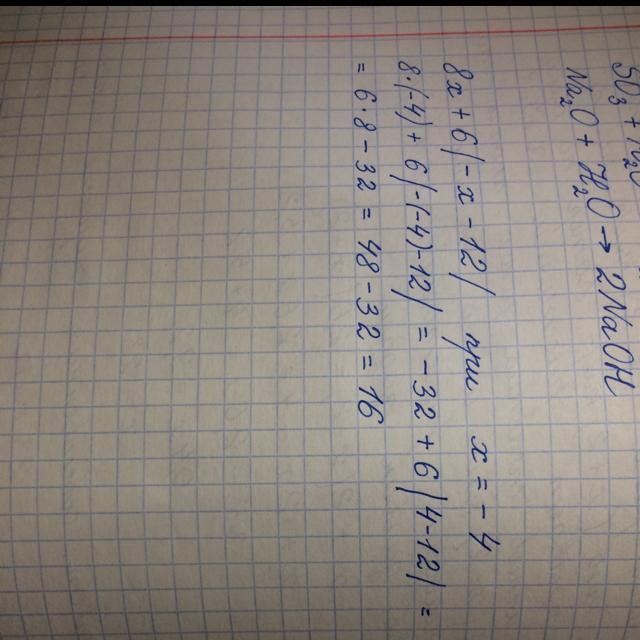 SO₃ + H₂O
Na₂O + H₂O → 2NaOH
8x + 6|-x - 12| при x = -4
8·(-4) + 6|-(-4)-12| = -32 + 6|4-12| =
= 6·8 - 32 = 48 - 32 = 16